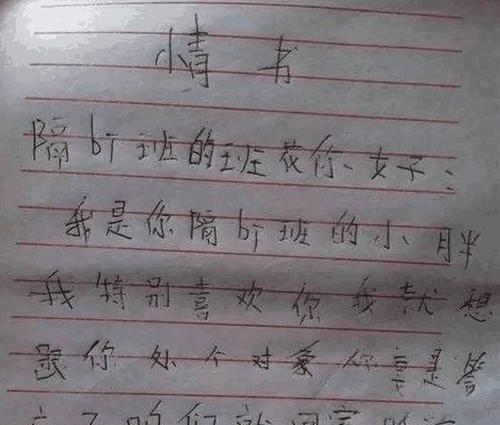 情书
隔bì班的班花你、女子:
我是你隔bì班的小月半
我特别喜欢你我就想
跟你处个对象你要是答